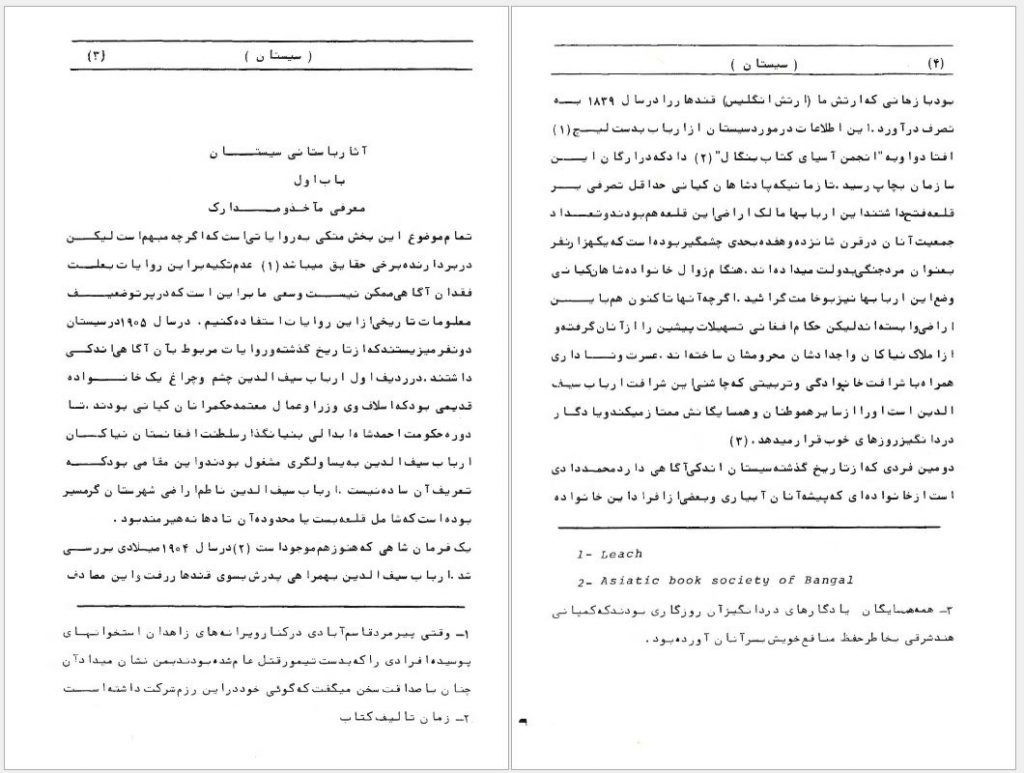 (۳) ( سیستان )
آثار باستانی سیستــــان
باب اول
معرفی مآخذ و مـــــدارک
تمام موضوع این بخش متکی به روایاتی است که اگرچه مبهم است لیکــن
در بردارنده برخی حقایق میباشد (۱) عدم تکیه براین روایات بعلــت
فقدان آگاهی ممکن نیســـت وسعی ما براین است که در پرتو ضعیــــف
معلومات تاریخی از این روایات استفاده کنیم . در سال ۱۹۰۵ در سیستان
دو نفر میزیستند که از تاریخ گذشته وروایات مربوط بآن آگاهی اندکــی
داشتند . در ردیف اول ارباب سیف الدین چشم وچراغ یک خانـــواده
قدیمی بود که اسلاف وی وزرا وعمال معتمد حکمرانان کیانی بودند . تــا
دوره حکومت احمد شاه ابدالی بنیانگذار سلطنت افغانستان نیاکــان
ارباب سیف الدین به یساولگری مشغول بودند واین مقامی بود کـــه
تعریف آن ساده نیست . ارباب سیف الدین ناظم اراضی شهرستان گرمسیر
بوده است که شامل قلعه بست یا محدوده آن تا دهانه هیرمند بود .
یک فرمان شاهی که هنوز هم موجود است (۲) در سال ۱۹۰۴ میــلادی بررســی
شد . ارباب سیف الدین بهمراهی پدرش بسوی قندهار رفت واین مصادف
۱ـ وقتی پیرمرد قاسم آبادی در کنار ویرانه های زاهدان استخوانهــای
پوسیده افرادی را که بدست تیمور قتل عام شده بودند بمن نشان میداد آن
چنان با صداقت سخن میگفت که گوئی خود در این رزم شرکت داشته اســـت
۲ـ زمان تألیف کتاب
(۴) ( سیستان )
بود با زمانی که ارتش ما (ارتش انگلیس) قندهار را در سال ۱۸۳۹ بـــه
تصرف درآورد . این اطلاعات در مورد سیستان از ارباب بدست لیــچ (۱)
افتاد و او به "انجمن آسیای کتاب بنگال" (۲) داد که در ارگان ایـــن
سازمان بچاپ رسید . تا زمانیکه پادشاهان کیانی حداقل تصرفی بـــر
قلعه فتح داشتند این اربابها مالک اراضی این قلعه هم بودند وتعــداد
جمعیت آنان در قرن شانزده وهفده بحدی چشمگیر بوده است که یکهزار نفر
بعنوان مرد جنگی بدولت میداده اند . هنگام زوال خانواده شاهان کیانی
وضع این اربابها نیز بوخامت گرائید . اگرچه آنها تا کنون هم با یـــن
اراضی وابسته اند لیکن حکام افغانی تسهیلات پیشین را از آنان گرفته و
از املاک نیاکان واجدادشان محرومشان ساخته اند . عسرت ونــــاداری
همراه با شرافت خانوادگی وتربیتی که چاشنی این شرافت ارباب سیــف
الدین است او را از سایر هموطنان وهمسایگانش ممتاز میکند ویادگــار
دردانگیز روزهای خوب قرار میدهد . (۳)
دومین فردی که از تاریخ گذشته سیستان اندکی آگاهی دارد محمد دادی
است از خانواده ای که پیشه آنان آبیاری وبعضی از افراد این خانواده
1- Leach
2- Asiatic book society of Bangal
۳ـ همه همسایگان یادگارهای دردانگیز آن روزگاری بودند که کمپانی
هند شرقی بخاطر حفظ منافع خویش بسر آنان آورده بود .